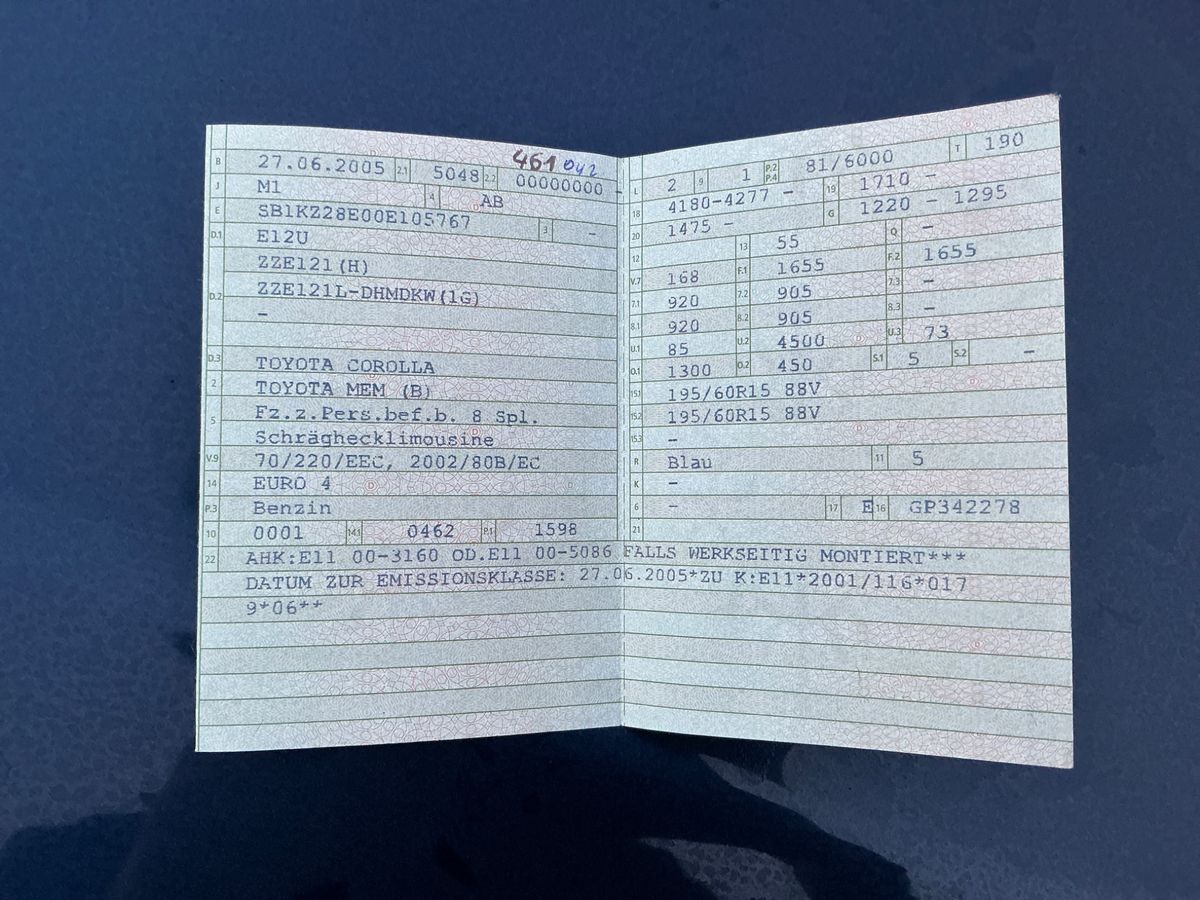 461 042
B 27.06.2005 2.1 5048 2.2 00000000 -
J M1 4 AB
E SB1KZ28E00E105767 3 -
D.1 E12U
ZZE121(H)
D.2 ZZE121L-DHMDKW(1G)
-
D.3 TOYOTA COROLLA
2 TOYOTA MEM (B)
5 Fz.z.Pers.bef.b. 8 Spl.
Schräghecklimousine
V.9 70/220/EEC, 2002/80B/EC
14 EURO 4
P.3 Benzin
10 0001 14.1 0462 P.1 1598
L 2 9 1 P.2 P.4 81/6000 T 190
18 4180-4277 - 19 1710 -
20 1475 - G 1220 - 1295
12 13 55 Q -
V.7 168 F.1 1655 F.2 1655
7.1 920 7.2 905 7.3 -
8.1 920 8.2 905 8.3 -
U.1 85 U.2 4500 U.3 73
O.1 1300 O.2 450 S.1 5 S.2 -
15.1 195/60R15 88V
15.2 195/60R15 88V
15.3 -
R Blau 11 5
K -
6 - 17 E 16 GP342278
21
22 AHK:E11 00-3160 OD.E11 00-5086 FALLS WERKSEITIG MONTIERT***
DATUM ZUR EMISSIONSKLASSE: 27.06.2005*ZU K:E11*2001/116*017
9*06**